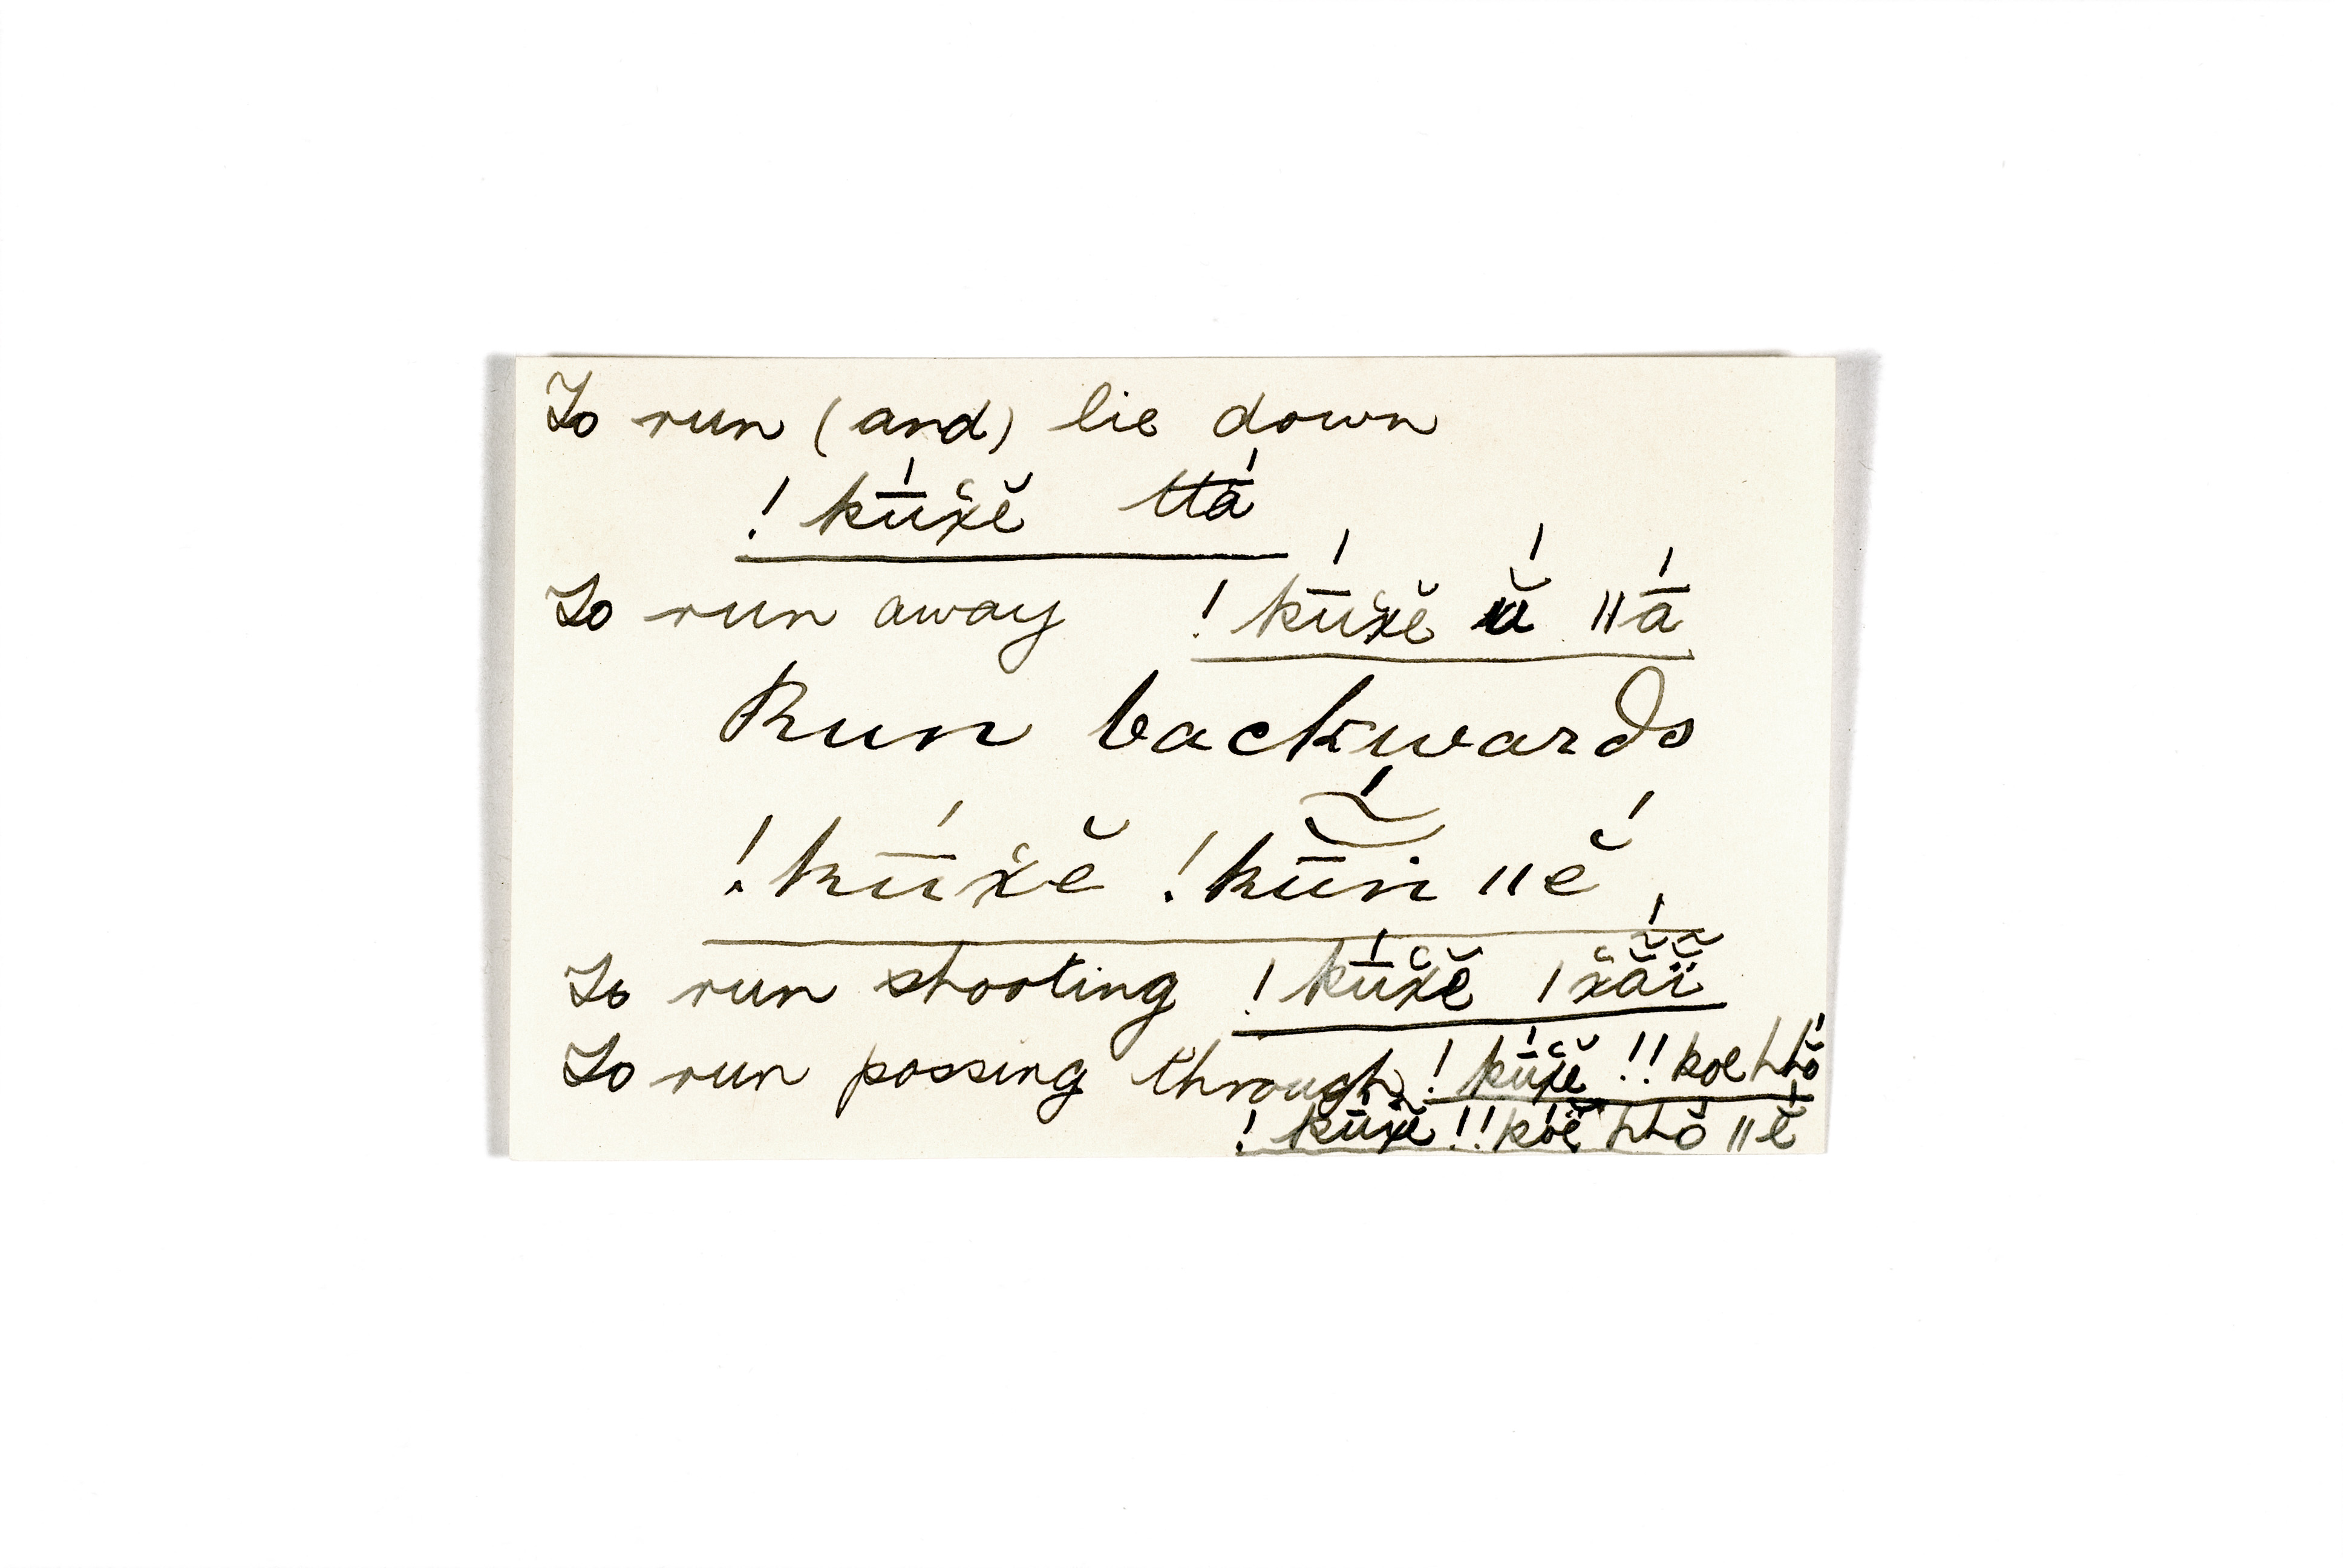 To run (and) lie down
! kū́x̆ĕ ttá
To run away ! kū́x̆ĕ ŭ́ ǁā́
Run backwards
! kū́x̆ĕ ! kū̆̃́n ǁĕ́
To run shooting ! kū́x̆ĕ ǀx̆ã̆́ĭ̃
To run passing through ! kū́x̆ĕ !! koe hhŏ́
! kū́x̆ĕ !! kóĕ hhŏ́ ǁĕ́